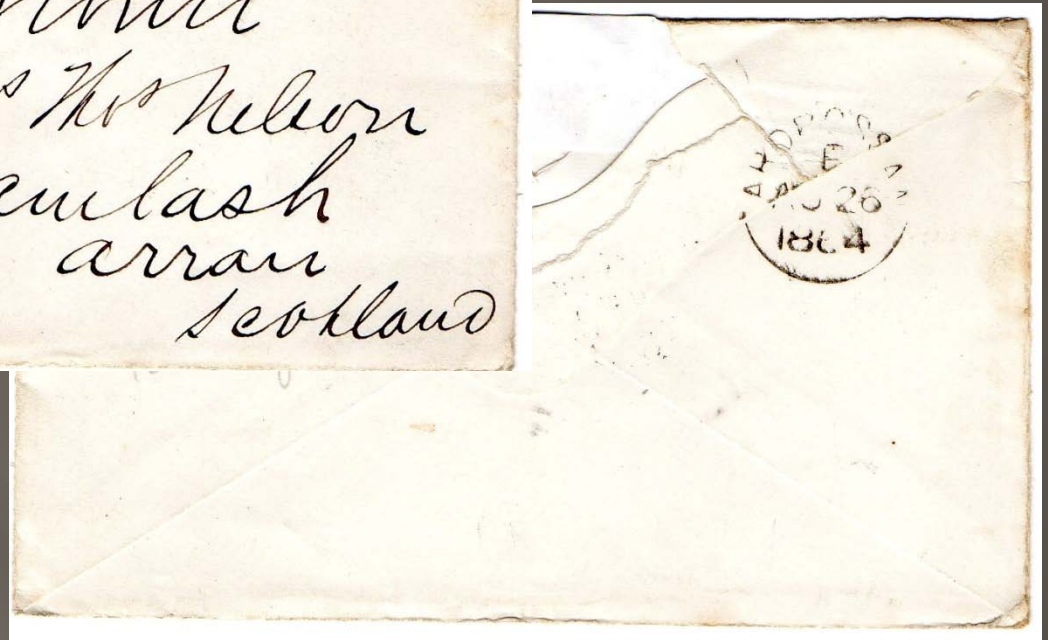 s Thos Nelson
amlash
Arran
Scotland
ARDROSSAN
E
AU 26
1864